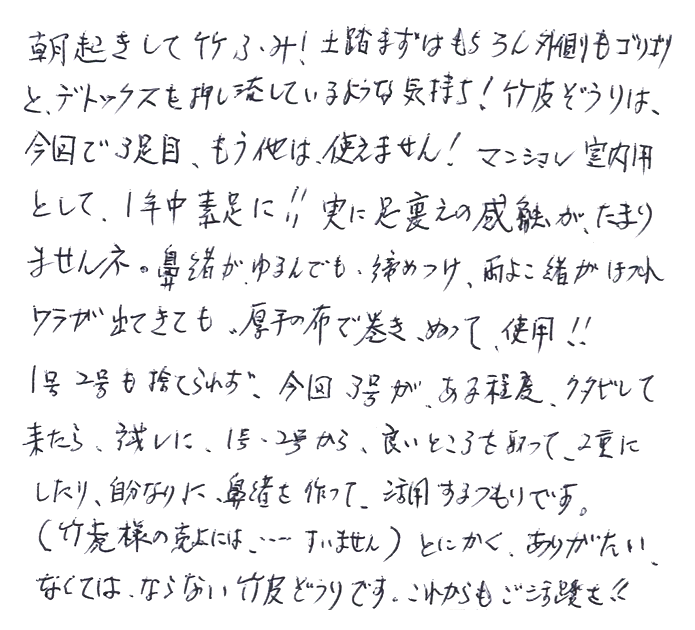 朝起きして竹ふみ！土踏まずはもちろん外側もゴリゴリ
と、デトックスを押し流しているような気持ち！竹皮ぞうりは、
今回で3足目、もう他は、使えません！マンション室内用
として、1年中素足に!!実に足裏えの感触が、たまり
ませんネ。鼻緒が、ゆるんでも、締めつけ、両よこ緒がほつれ
ワラが出てきても、厚手の布で巻き、ぬって、使用!!
1号2号も捨てられず、今回3号が、ある程度、クタビレて
来たら、試しに、1号・2号から、良いところを取って、2重に
したり、自分なりに、鼻緒を作って、活用するつもりです。
(竹虎様の売上には、……すいません)とにかく、ありがたい、
なくては、ならない竹皮ぞうりです。これからもご活躍を!!